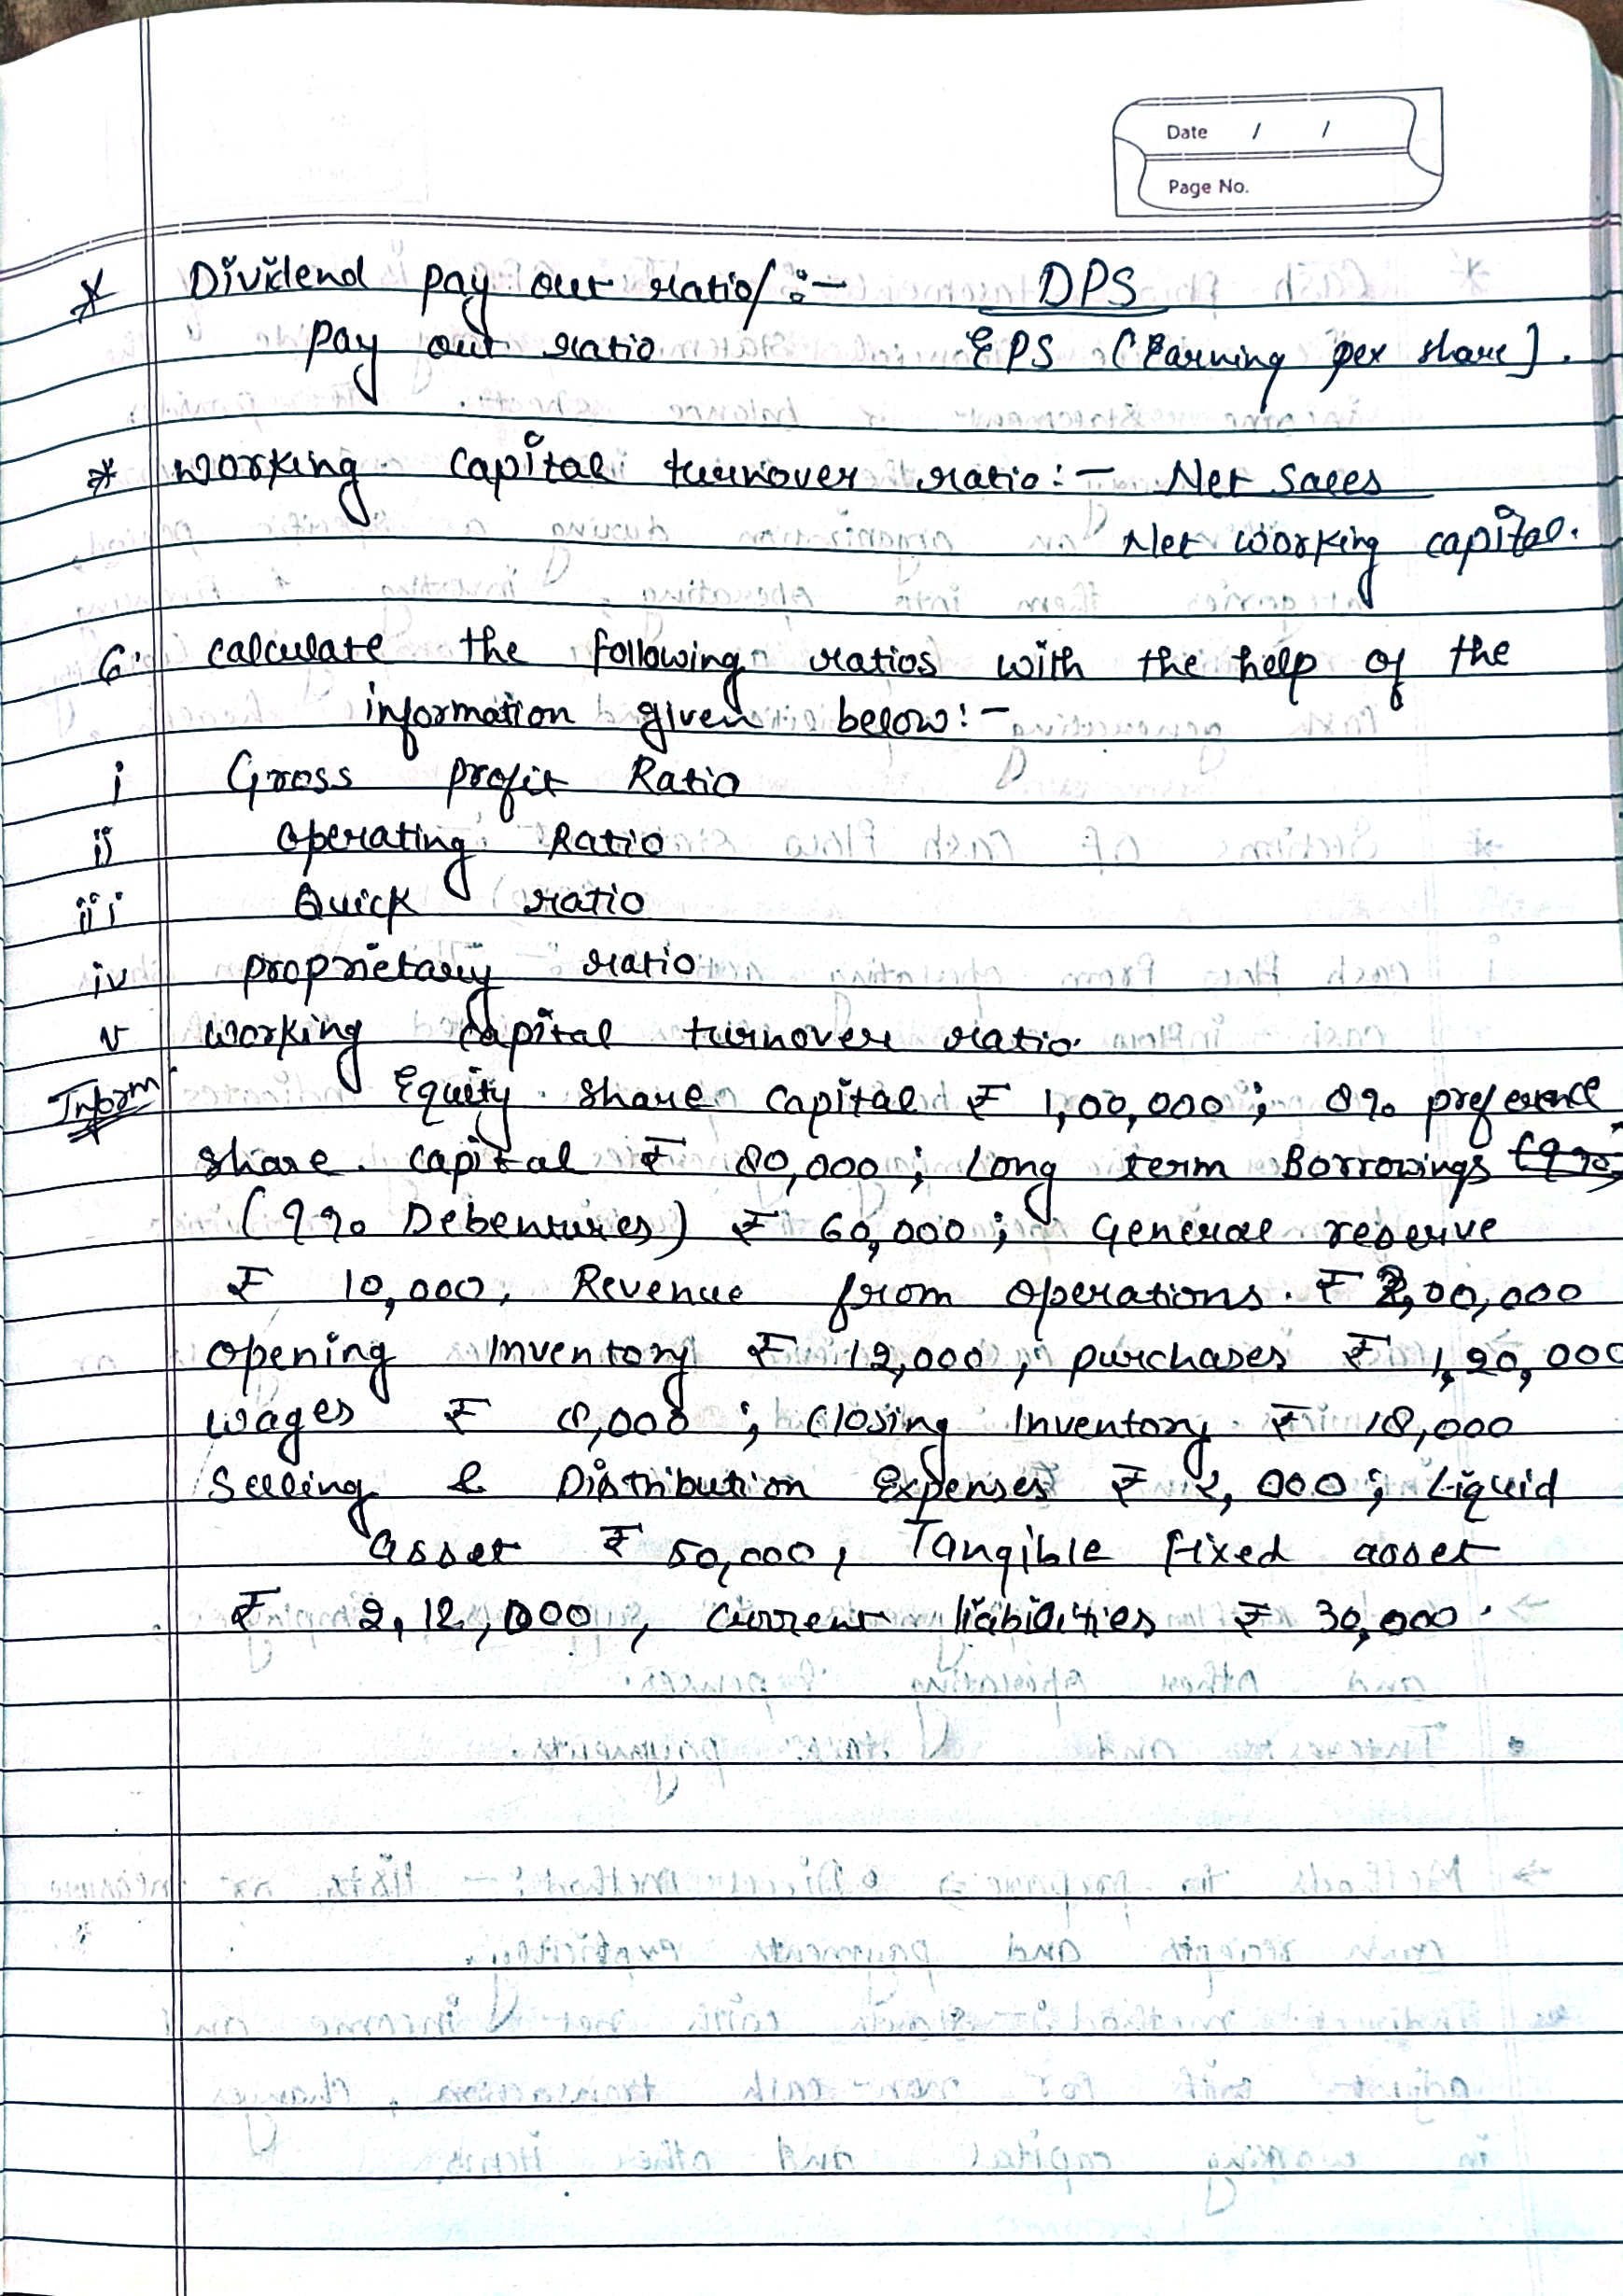 Date / /
Page No.
* Dividend pay out ratio/:- DPS
pay out ratio EPS (Earning per share].
* Working capital turnover ratio:- Net Sales
Net working capital.
6. calculate the following ratios with the help of the
information given below:-
i Gross profit Ratio
ii operating Ratio
iii Quick ratio
iv proprietary ratio
v working capital turnover ratio.
Inform Equity share capital ₹ 1,00,000; 8% preference
share capital ₹ 80,000; Long term Borrowings
(9% Debentures) ₹ 60,000; General reserve
₹ 10,000, Revenue from operations. ₹ 2,00,000
opening Inventory ₹ 12,000, purchases ₹ 1,20,000
wages ₹ 8,000; Closing Inventory ₹ 18,000
Selling & Distribution Expenses ₹ 2,000; Liquid
asset ₹ 50,000, Tangible Fixed asset
₹ 2,12,000, current liabilities ₹ 30,000.